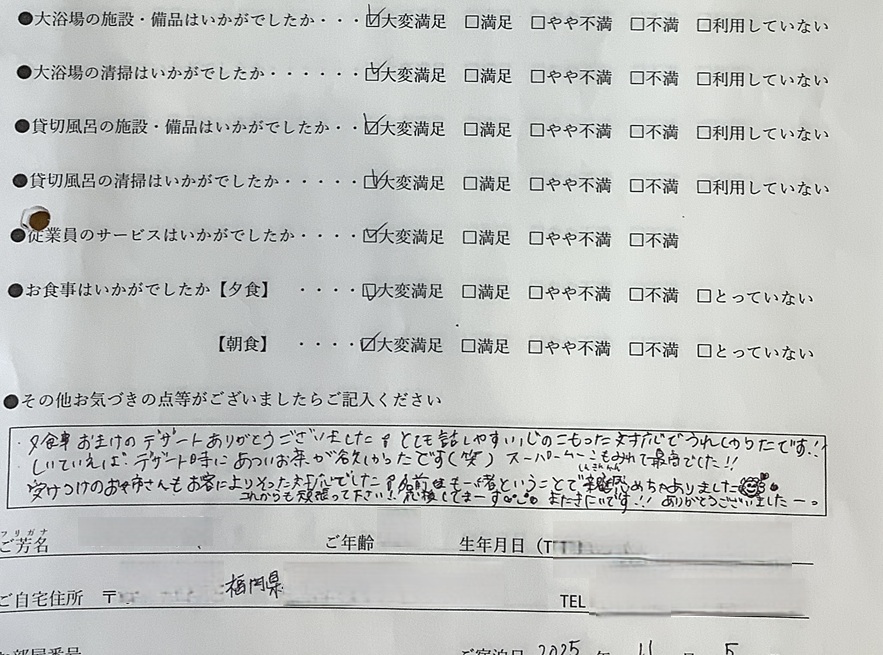 ●大浴場の施設・備品はいかがでしたか・・・☑大変満足 □満足 □やや不満 □不満 □利用していない
●大浴場の清掃はいかがでしたか・・・・・・☑大変満足 □満足 □やや不満 □不満 □利用していない
●貸切風呂の施設・備品はいかがでしたか・・☑大変満足 □満足 □やや不満 □不満 □利用していない
●貸切風呂の清掃はいかがでしたか・・・・・☑大変満足 □満足 □やや不満 □不満 □利用していない
●従業員のサービスはいかがでしたか・・・・☑大変満足 □満足 □やや不満 □不満
●お食事はいかがでしたか【夕食】 ・・・・☑大変満足 □満足 □やや不満 □不満 □とっていない
【朝食】 ・・・・☑大変満足 □満足 □やや不満 □不満 □とっていない
●その他お気づきの点等がございましたらご記入ください
夕食事 おまけの デザートありがとうございました とても話しやすい心のこもった対応でうれしかったです!!
しいていえば デザート時に あついお茶が欲しかったです(笑) スーパームーンもみれて最高でした!!
受けつけのお姉さんもお客によりそった対応でした 名前も一緒ということで めちゃありました
しんきんかん
これからも頑張って下さい!! 応援してまーす またきたいです!! ありがとうございましたー
フリガナ
ご芳名 ご年齢 生年月日(T
ご自宅住所 〒 福岡県 TEL
お部屋番号 ご宿泊日 2025 年 11 月 5